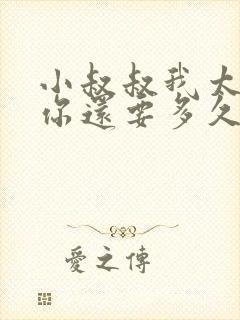 小叔叔我太
你還要多久
愛之傳